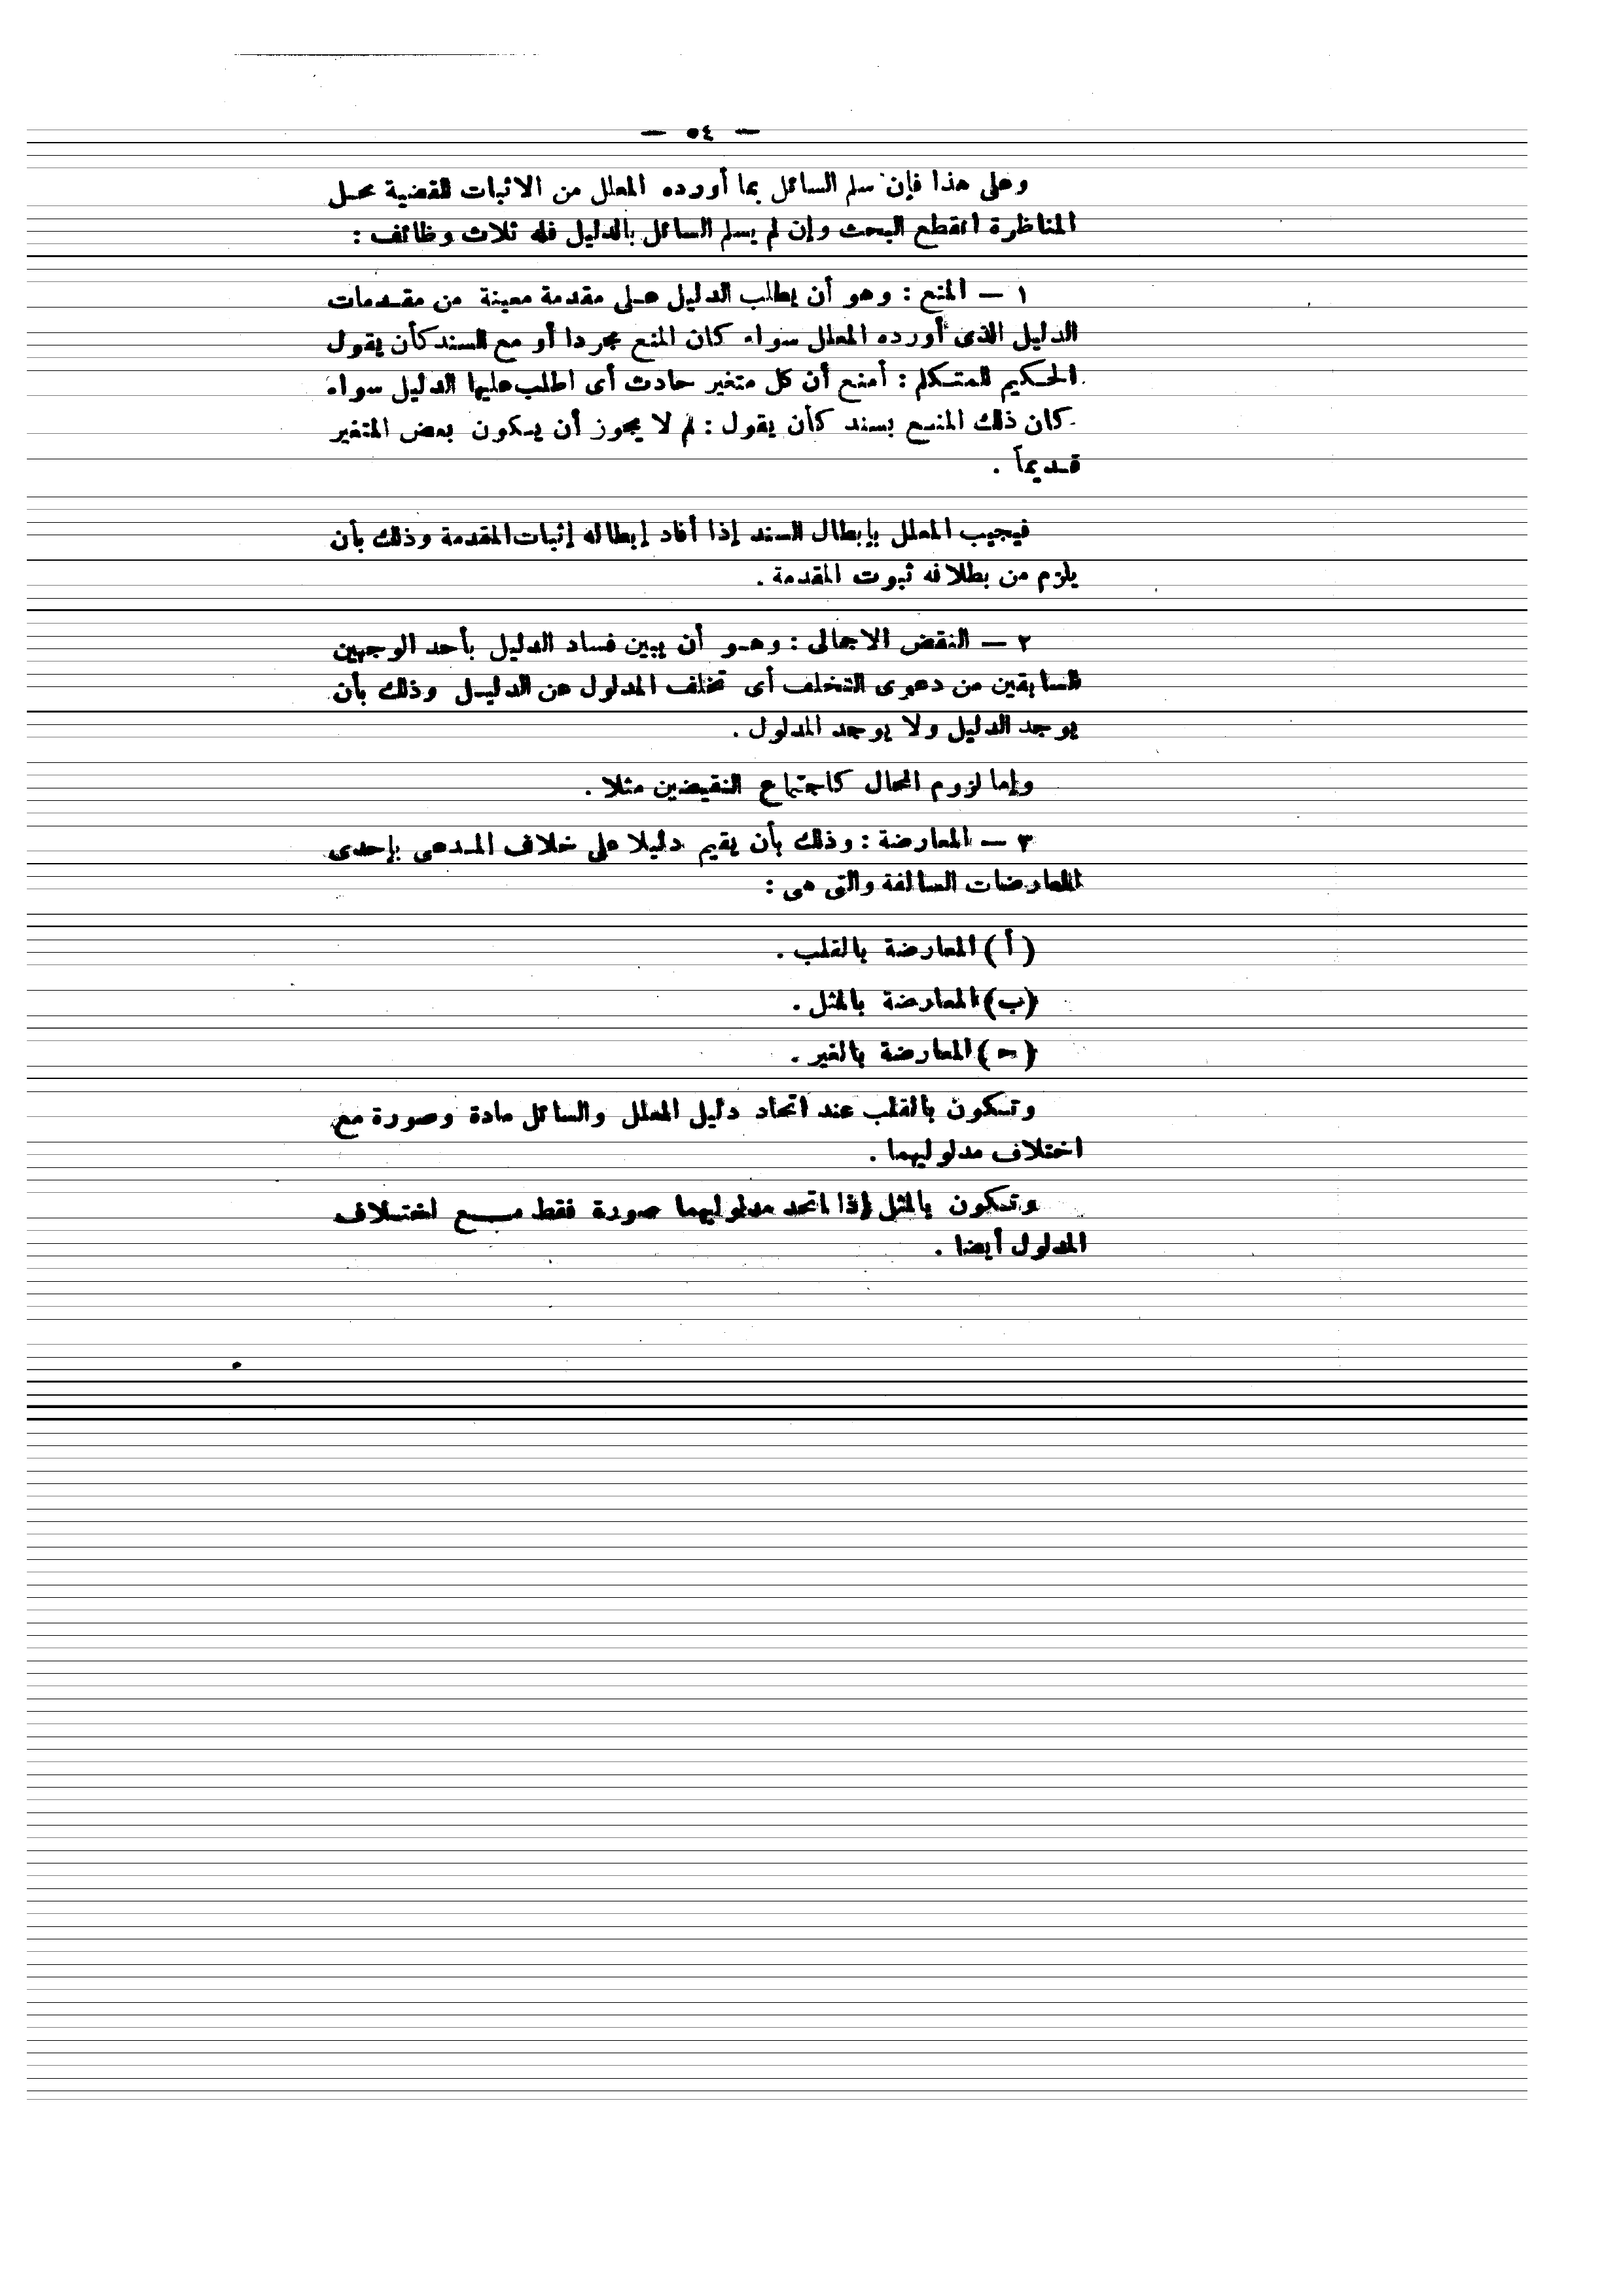 — ٥٤ —
وعلى هذا فإن سلم السائل بما أورده المعلل من الاثبات للقضية محل
المناظرة انقطع البحث وإن لم يسلم السائل بالدليل فله ثلاث وظائف :
١ — المنع : وهو أن يطلب الدليل على مقدمة معينة من مقدمات
الدليل الذى أورده المعلل سواء كان المنع مجردا أو مع السند كأن يقول
الحكيم للمتكلم : أمنع أن كل متغير حادث أى اطلب عليها الدليل سواء
كان ذلك المنع بسند كأن يقول : لم لا يجوز أن يكون بعض المتغير
قديماً .
فيجيب المعلل بإبطال السند إذا أفاد إبطاله إثبات المقدمة وذلك بأن
يلزم من بطلانه ثبوت المقدمة .
٢ — النقض الاجمالى : وهو أن يبين فساد الدليل بأحد الوجهين
السابقين من دعوى التخلف أى تخلف المدلول عن الدليل وذلك بأن
يوجد الدليل ولا يوجد المدلول .
وإما لزوم المحال كاجتماع النقيضين مثلا .
٣ — المعارضة : وذلك بأن يقيم دليلا على خلاف المدعى بإحدى
المعارضات السالفة والتى هى :
( أ ) المعارضة بالقلب .
(ب) المعارضة بالمثل .
( ح ) المعارضة بالغير .
وتكون بالقلب عند اتحاد دليل المعلل والسائل مادة وصورة مع
اختلاف مدلوليهما .
وتكون بالمثل إذا اتحد مدلوليهما صورة فقط مع اختلاف
المدلول أيضا .